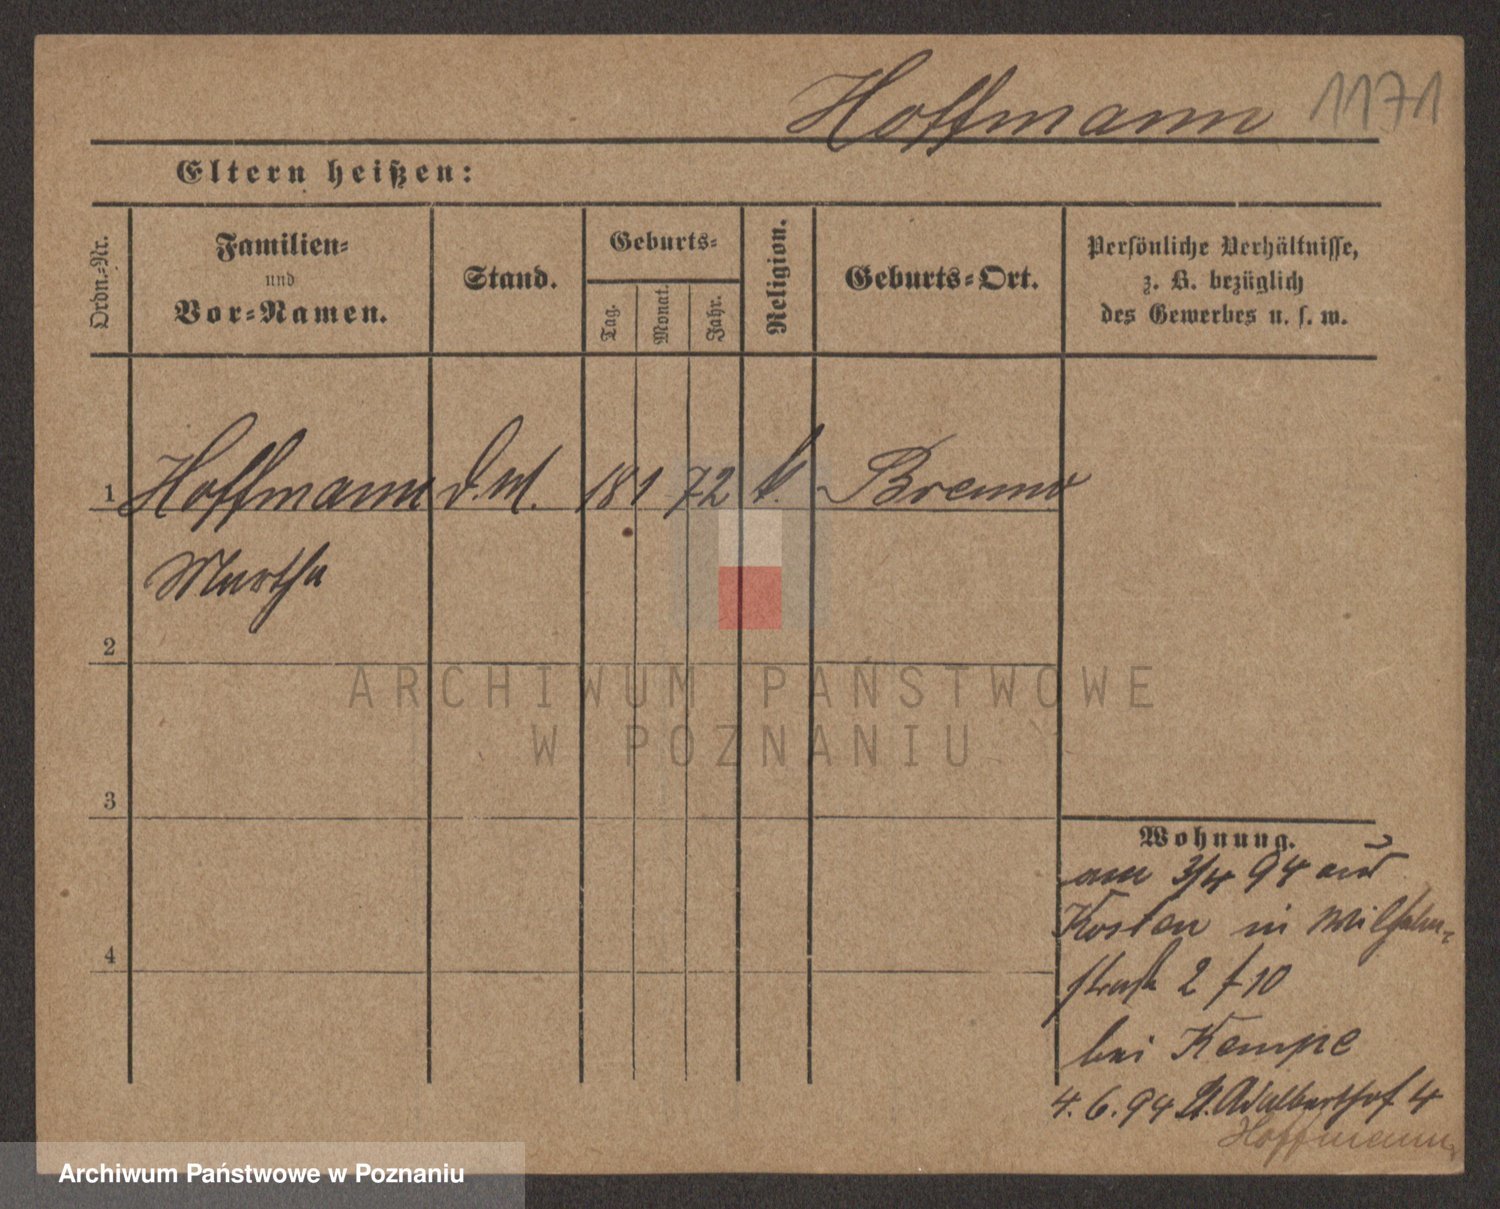 Hoffmann 1171
Eltern heißen:
Ordn.-Nr.
Familien-
und
Vor-Namen.
Stand.
Geburts-
Tag.
Monat.
Jahr.
Religion.
Geburts-Ort.
Persönliche Verhältnisse,
z. B. bezüglich
des Gewerbes u. s. w.
1 Hoffmann d. M. 18 1 72 k. Brenno
Martha
2
3
4
ARCHIWUM PAŃSTWOWE
W POZNANIU
Wohnung.
am 3/4 94 aus
Kosten in Wilhelm-
straße 2 f 10
bei Kempe
4. 6. 94 Adalberthof 4
Hoffmann
Archiwum Państwowe w Poznaniu